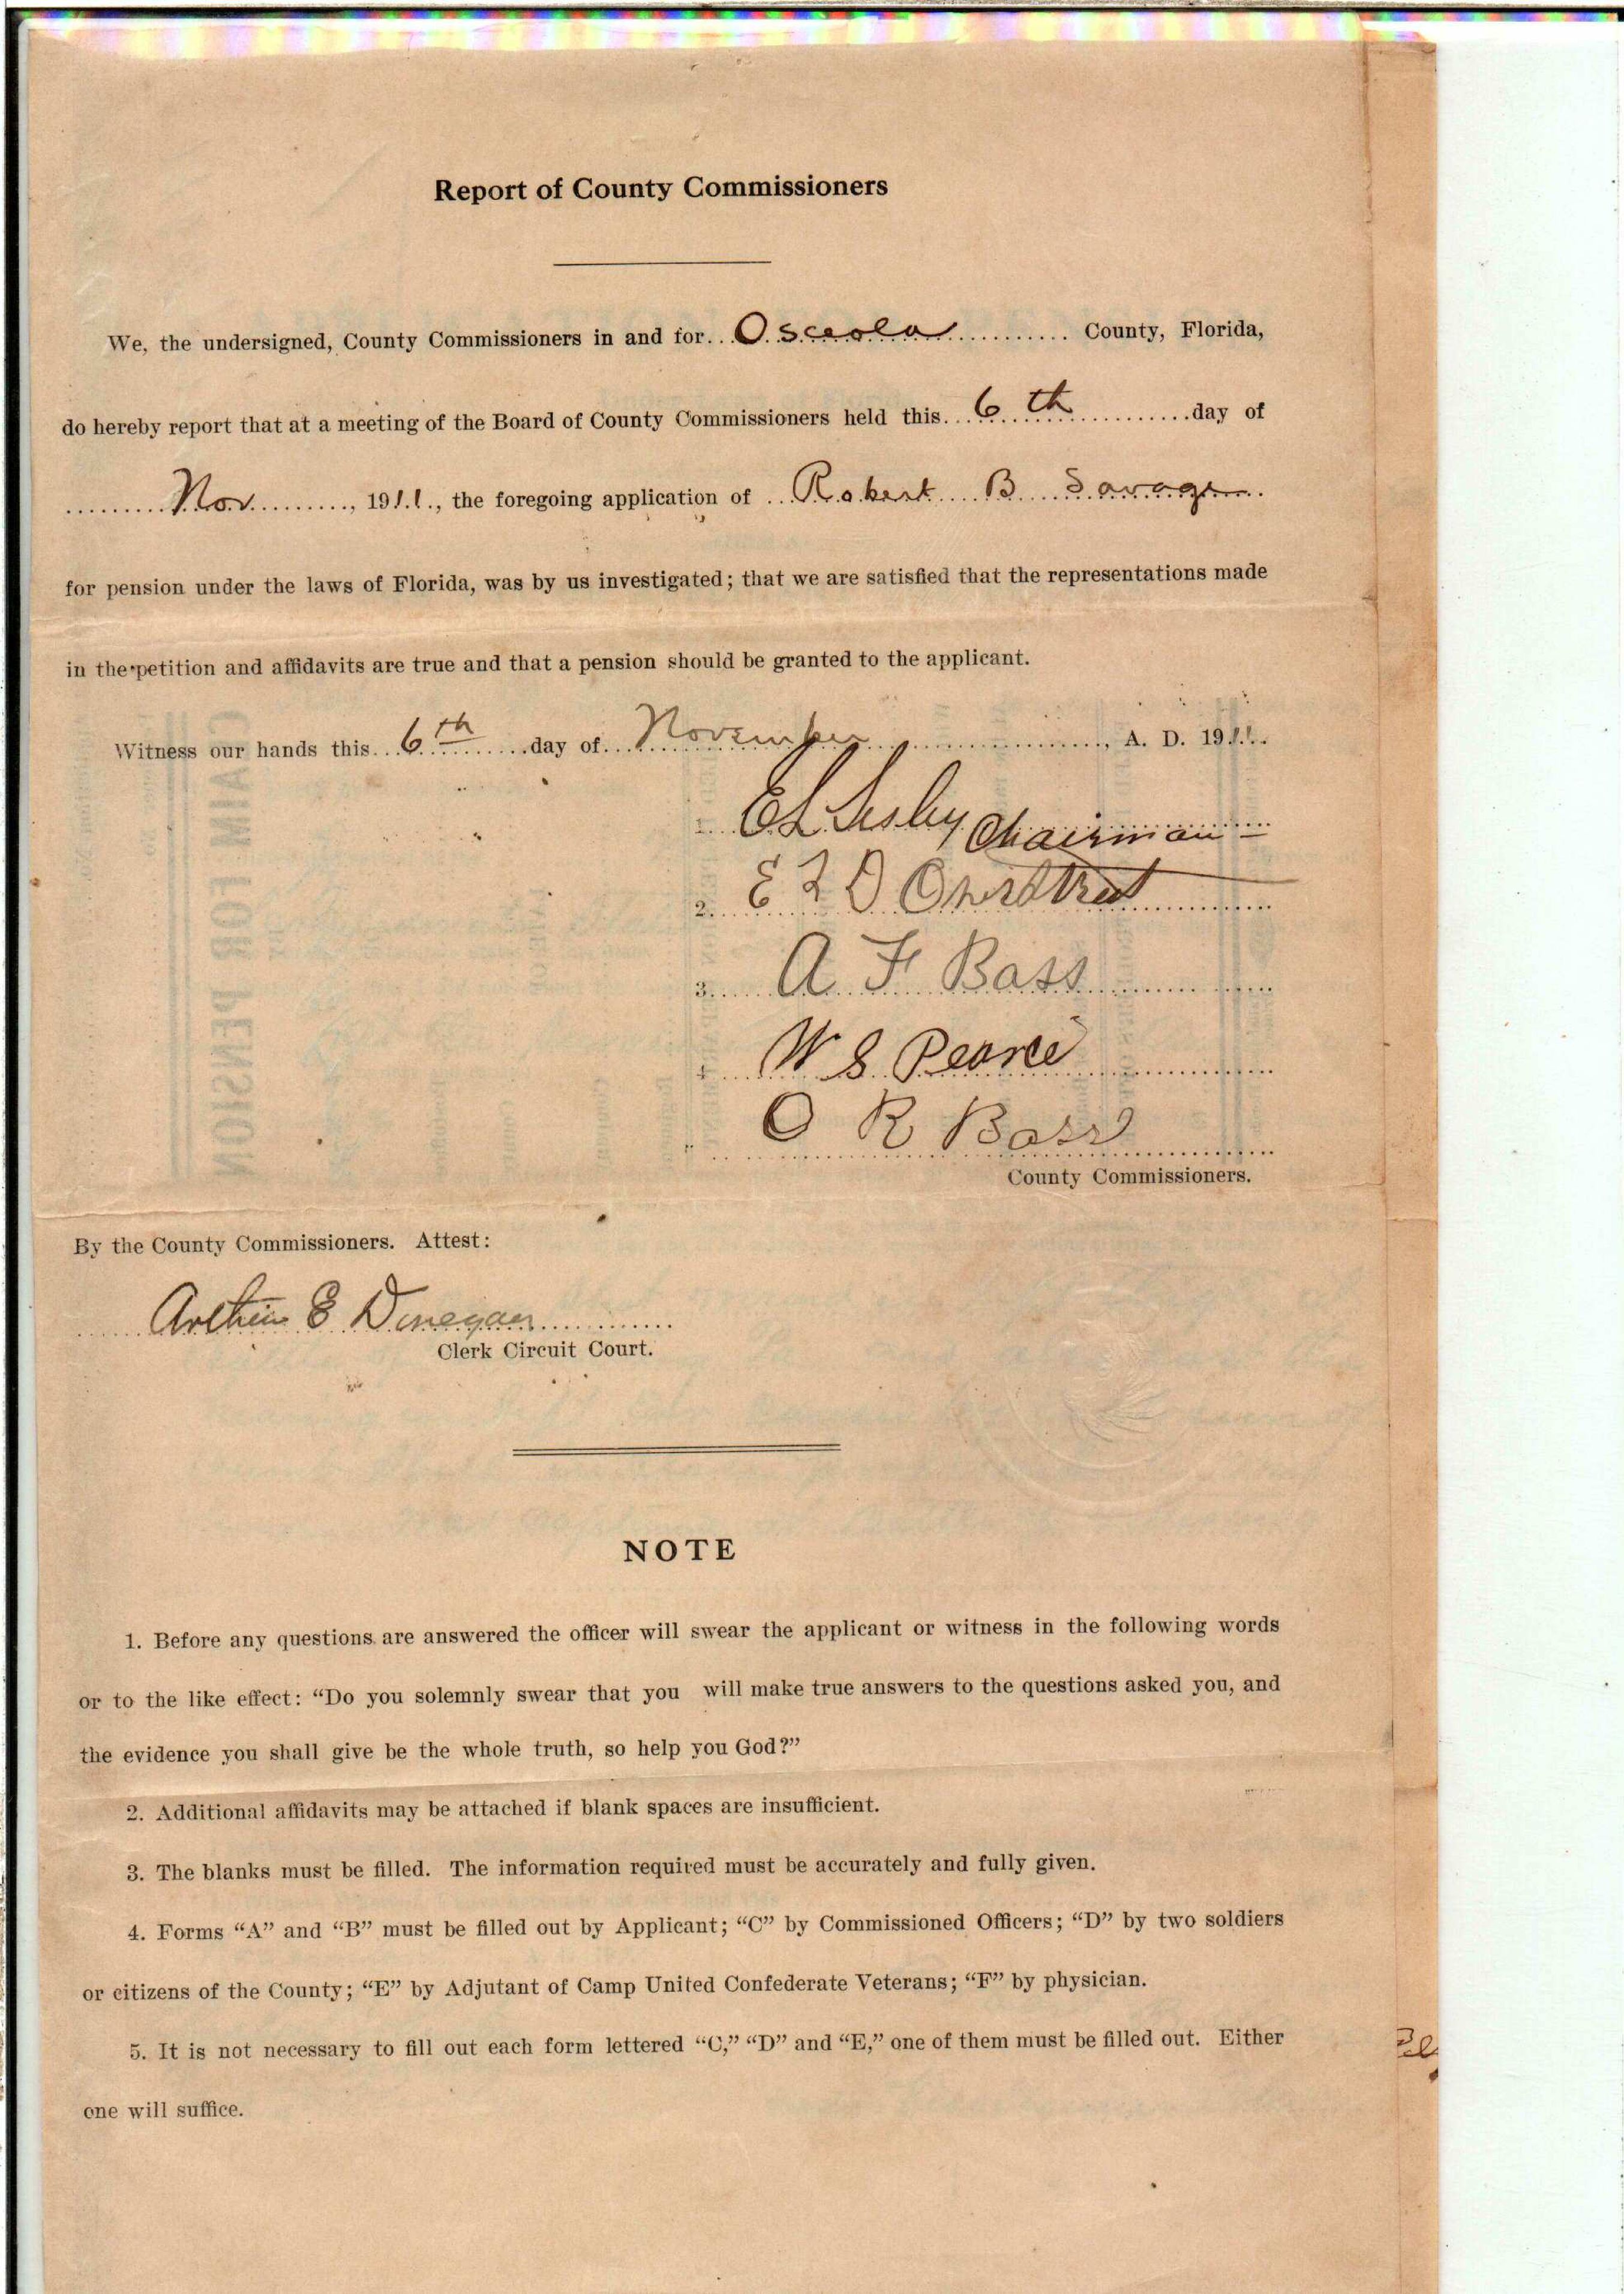 Report of County Commissioners
We, the undersigned, County Commissioners in and for Osceola County, Florida,
do hereby report that at a meeting of the Board of County Commissioners held this 6th day of
Nov, 1911, the foregoing application of Robert B Savage
for pension under the laws of Florida, was by us investigated; that we are satisfied that the representations made
in the petition and affidavits are true and that a pension should be granted to the applicant.
Witness our hands this 6th day of November, A. D. 1911.
E L Lesley Chairman
2. E L D Overstreet
3. A F Bass
W S Pearce
O R Bass
County Commissioners.
By the County Commissioners. Attest:
Arthur E Donegan
Clerk Circuit Court.
NOTE
1. Before any questions are answered the officer will swear the applicant or witness in the following words
or to the like effect: “Do you solemnly swear that you will make true answers to the questions asked you, and
the evidence you shall give be the whole truth, so help you God?”
2. Additional affidavits may be attached if blank spaces are insufficient.
3. The blanks must be filled. The information required must be accurately and fully given.
4. Forms “A” and “B” must be filled out by Applicant; “C” by Commissioned Officers; “D” by two soldiers
or citizens of the County; “E” by Adjutant of Camp United Confederate Veterans; “F” by physician.
5. It is not necessary to fill out each form lettered “C,” “D” and “E,” one of them must be filled out. Either
one will suffice.